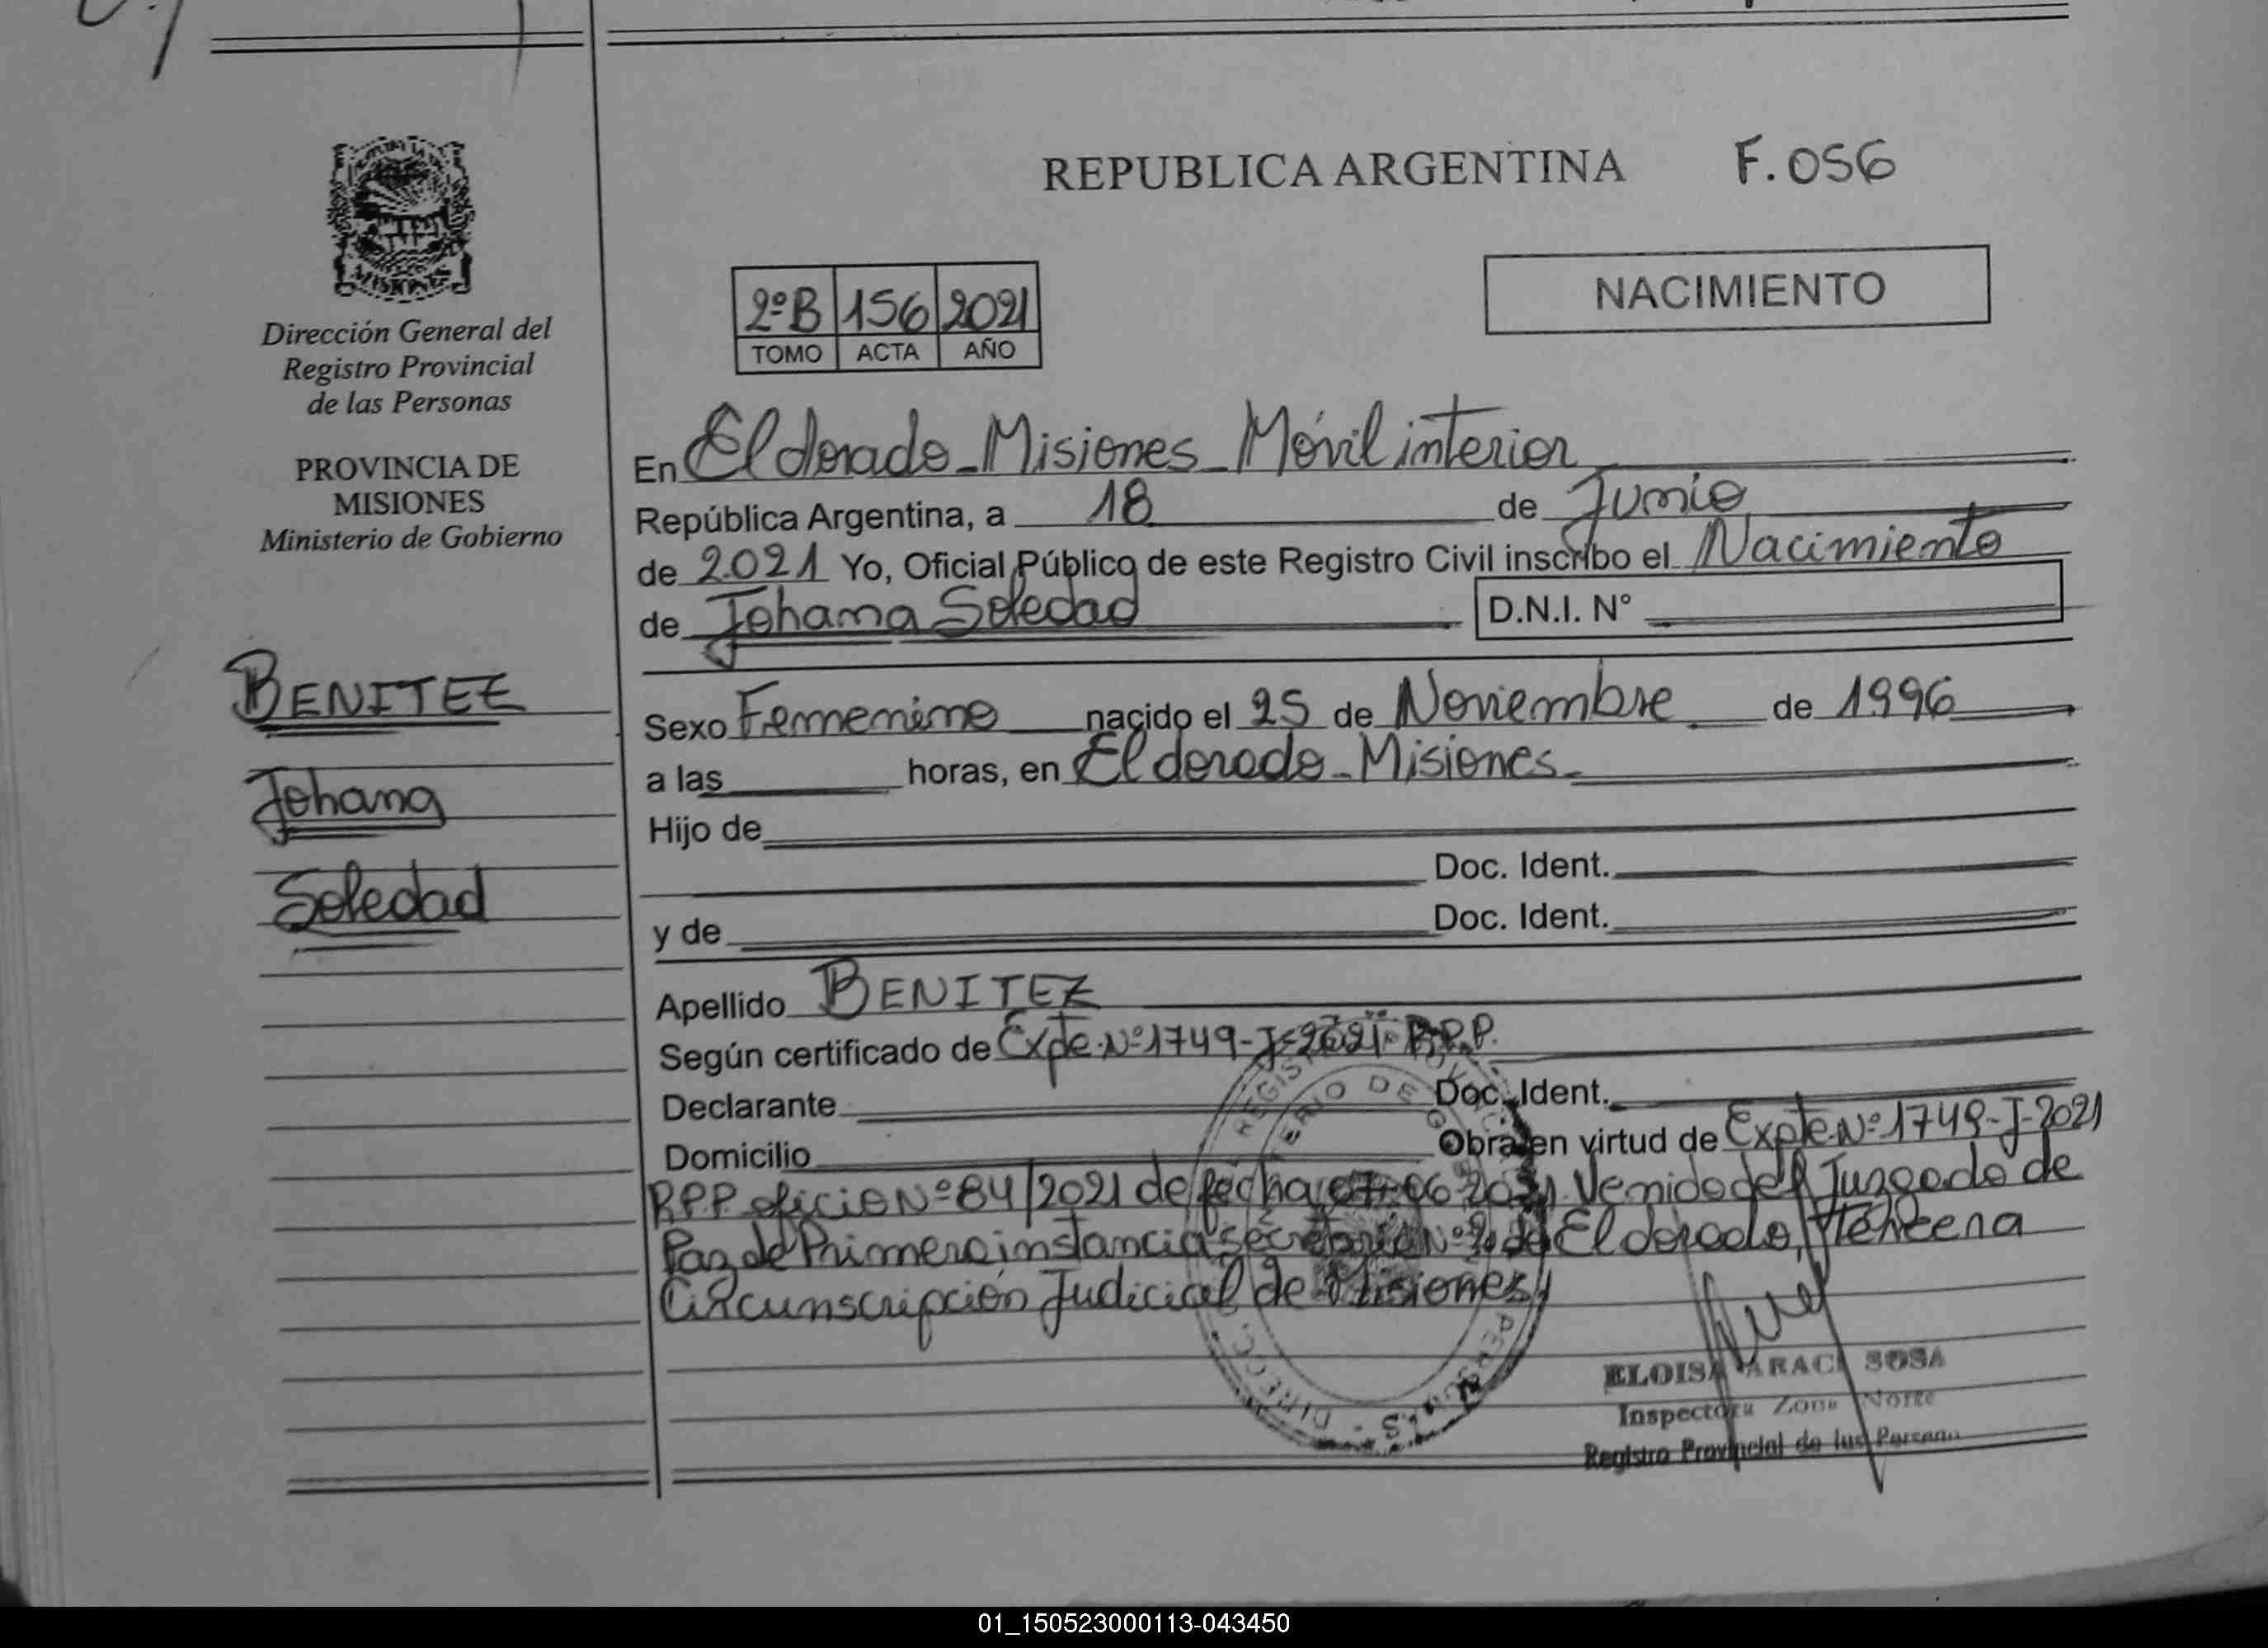 REPUBLICA ARGENTINA F. 056
MISIONES
Dirección General del
Registro Provincial
de las Personas
PROVINCIA DE
MISIONES
Ministerio de Gobierno
BENITEZ
Johana
Soledad
2ºB 156 2021
TOMO ACTA AÑO
NACIMIENTO
En Eldorado - Misiones - Móvil interior
República Argentina, a 18 de Junio
de 2.021 Yo, Oficial Público de este Registro Civil inscribo el Nacimiento
de Johana Soledad D.N.I. N°
Sexo Femenino nacido el 25 de Noviembre de 1.996
a las horas, en Eldorado - Misiones -
Hijo de
Doc. Ident.
y de Doc. Ident.
Apellido BENITEZ
Según certificado de Expte. Nº 1749-J-2021- R.P.P.
Declarante Doc. Ident.
Domicilio Obra en virtud de Expte. Nº 1749-J-2021
R.P.P. oficio Nº 84/2021 de fecha 07-06-2021. Venido del Juzgado de
Paz de Primera instancia secretaría Nº 2 de Eldorado, tercera
Circunscripción Judicial de Misiones
ELOISA ARACI SOSA
Inspectora Zona Norte
Registro Provincial de las Persona
01_150523000113-043450